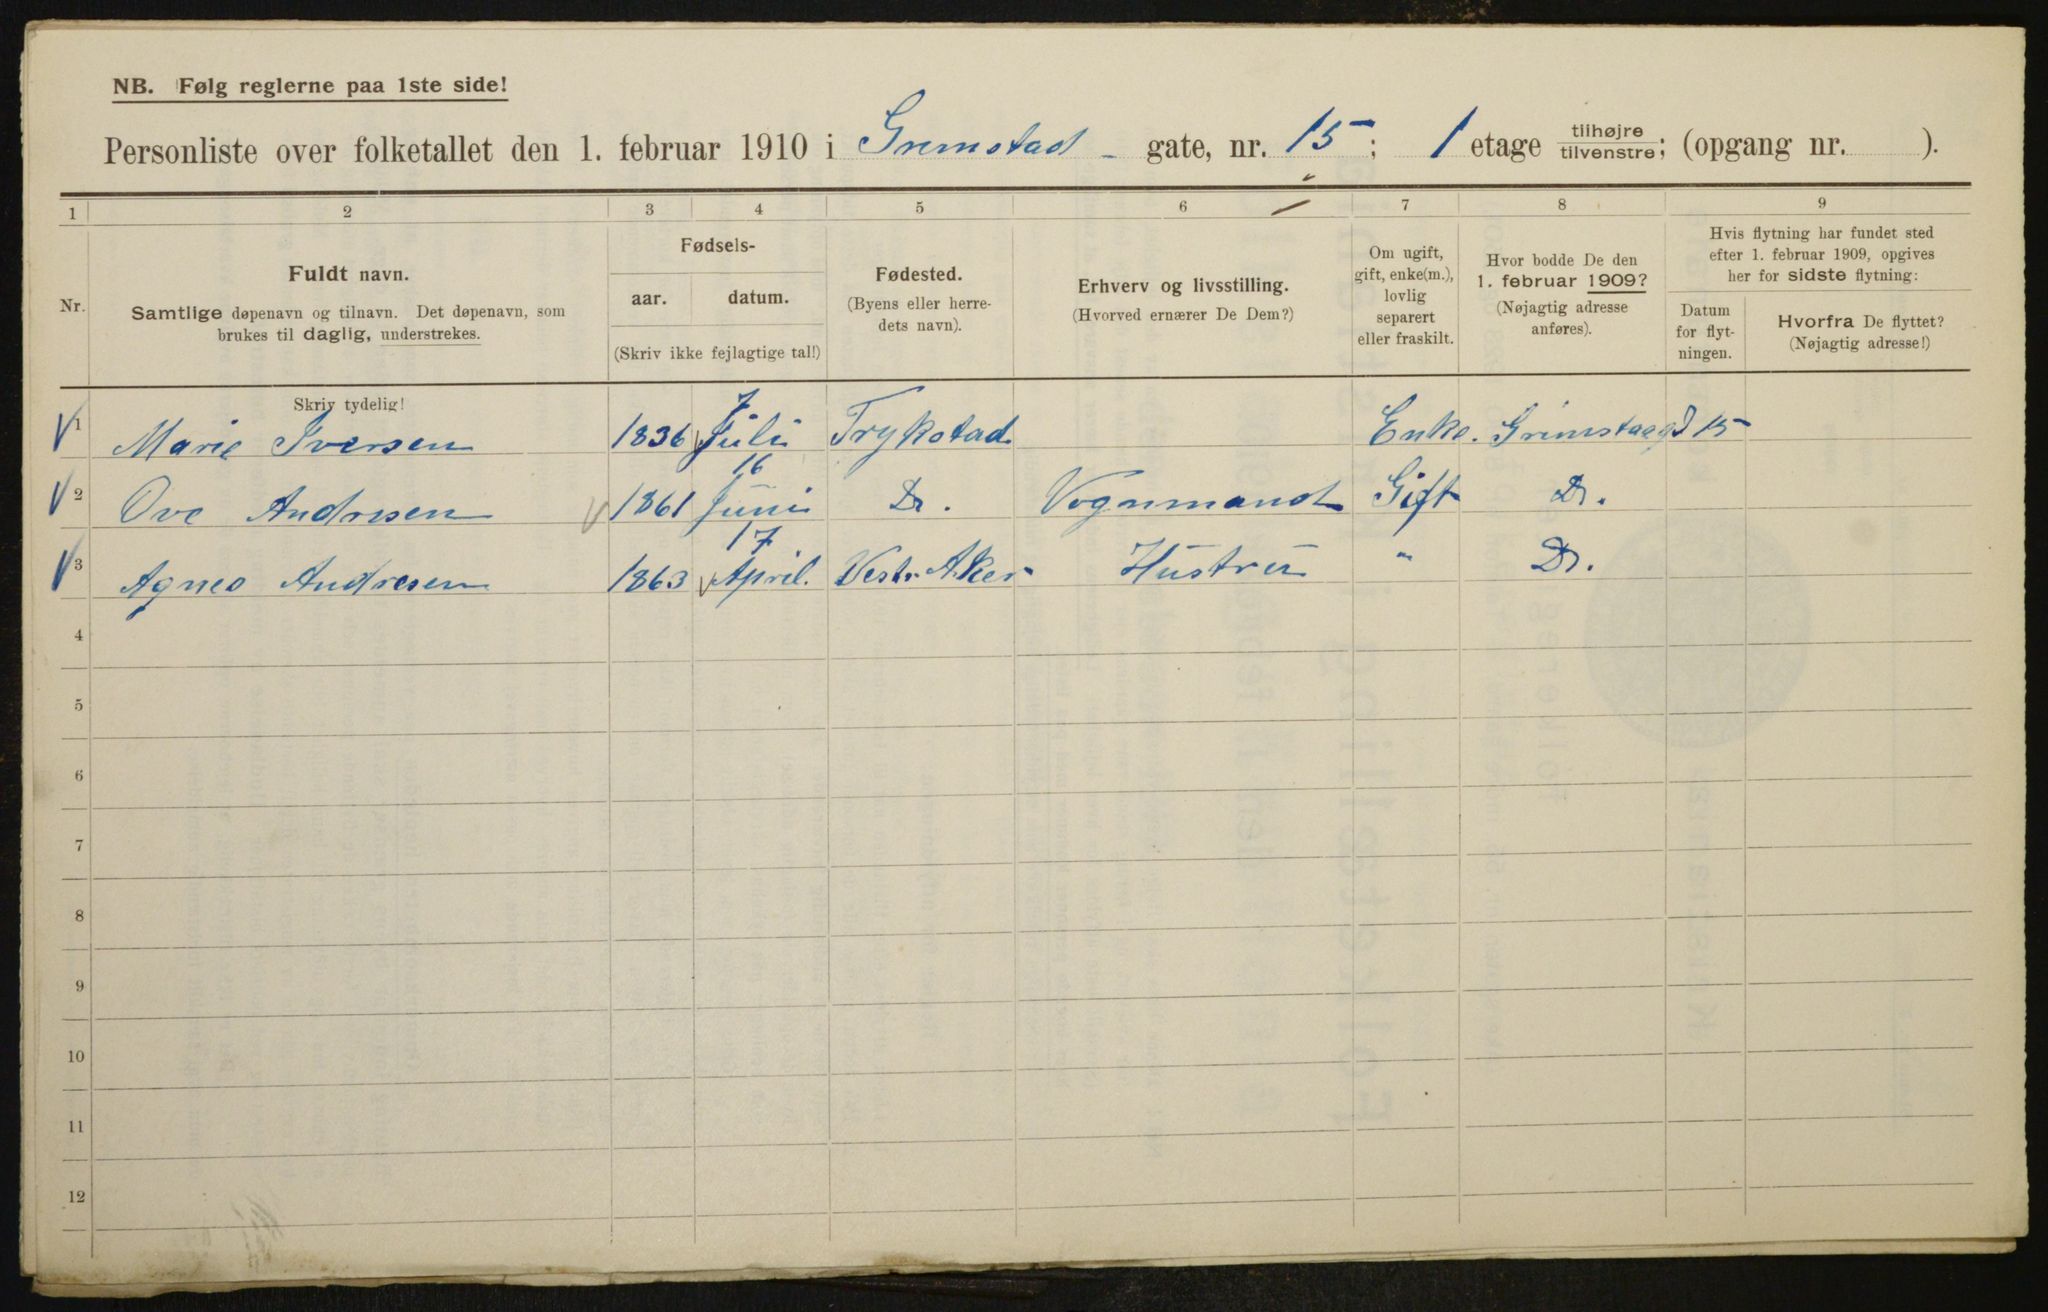 NB. Følg reglerne paa 1ste side!
Personliste over folketallet den 1. februar 1910 i Grimstad - gate, nr. 15; 1 etage tilhøjre tilvenstre; (opgang nr. ).
1 2 3 4 5 6 7 8 9
Nr.
Fuldt navn.
Samtlige døpenavn og tilnavn. Det døpenavn, som
brukes til daglig, understrekes.
Fødsels-
aar. datum.
(Skriv ikke fejlagtige tal!)
Fødested.
(Byens eller herre-
dets navn).
Erhverv og livsstilling.
(Hvorved ernærer De Dem?)
Om ugift,
gift, enke(m.),
lovlig
separert
eller fraskilt.
Hvor bodde De den
1. februar 1909?
(Nøjagtig adresse
anføres).
Hvis flytning har fundet sted
efter 1. februar 1909, opgives
her for sidste flytning:
Datum
for flyt-
ningen.
Hvorfra De flyttet?
(Nøjagtig adresse!)
Skriv tydelig!
1 Marie Iversen 1836 7 Juli Trykstad Enke. Grimstagd 15
2 Ove Andresen 1861 16 Juni Do. Vognmand Gift Do.
3 Agnes Andresen 1863 17 April. Vestr. Aker Hustru " Do.
4
5
6
7
8
9
10
11
12